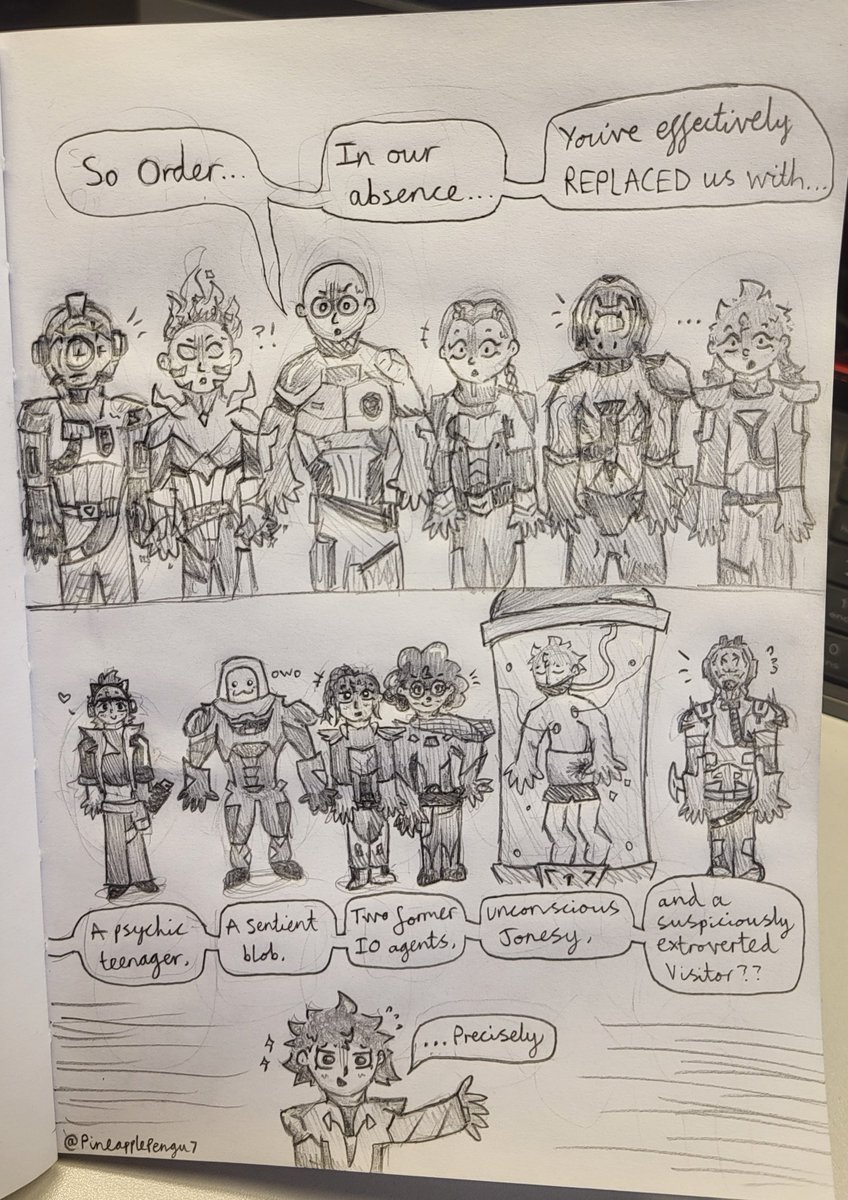 So Order...
In our
absence...
You've effectively
REPLACED us with...
?!
...
owo
A psychic
teenager.
A sentient
blob.
Two former
IO agents.
unconscious
Jonesy.
and a
suspiciously
extroverted
Visitor??
...Precisely
@PineapplePengu7